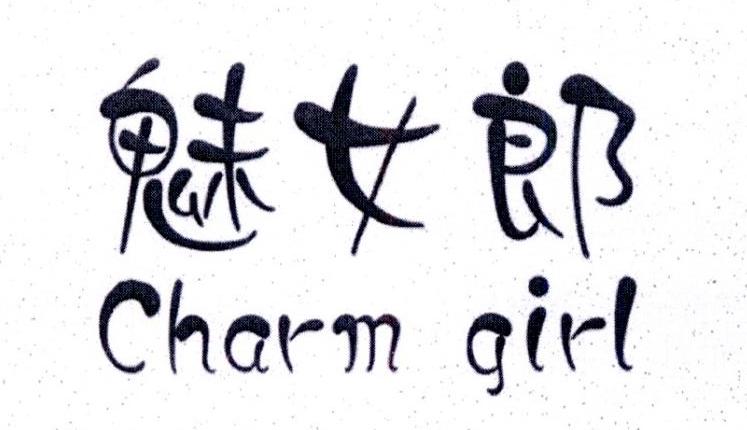 魅女郎
Charm girl